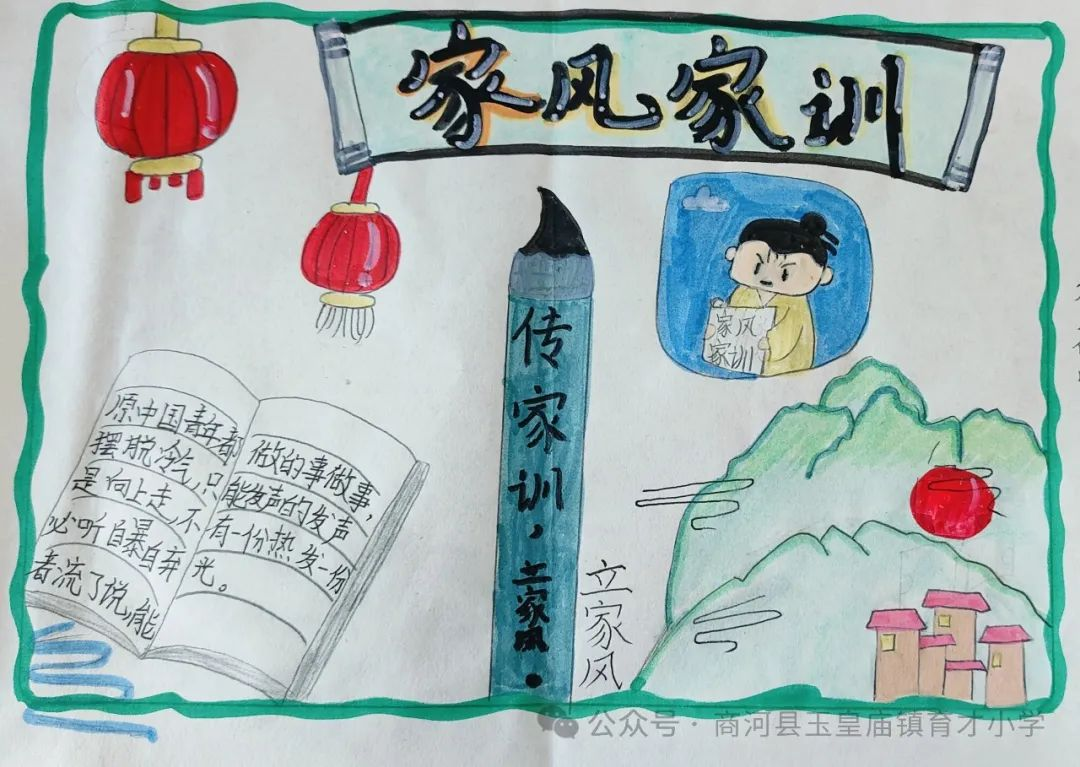 家风家训
家风
家训
传家训，立家风。
立家风
原中国青年都
摆脱冷气，只
是向上走，不
必听自暴自弃
者流了说，能
做的事做事，
能发声的发声
有一份热发一份
光。
公众号 · 商河县玉皇庙镇育才小学